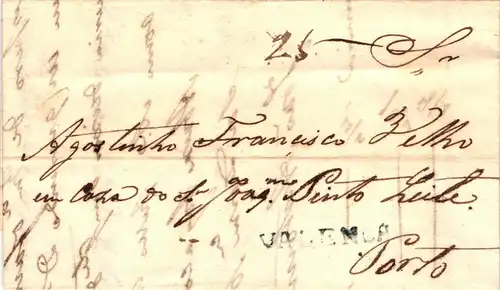 25 Sr
Agostinho Francisco Velho
em Caza do Sr Joaqm. Pinto Leite.
VALENÇA
Porto